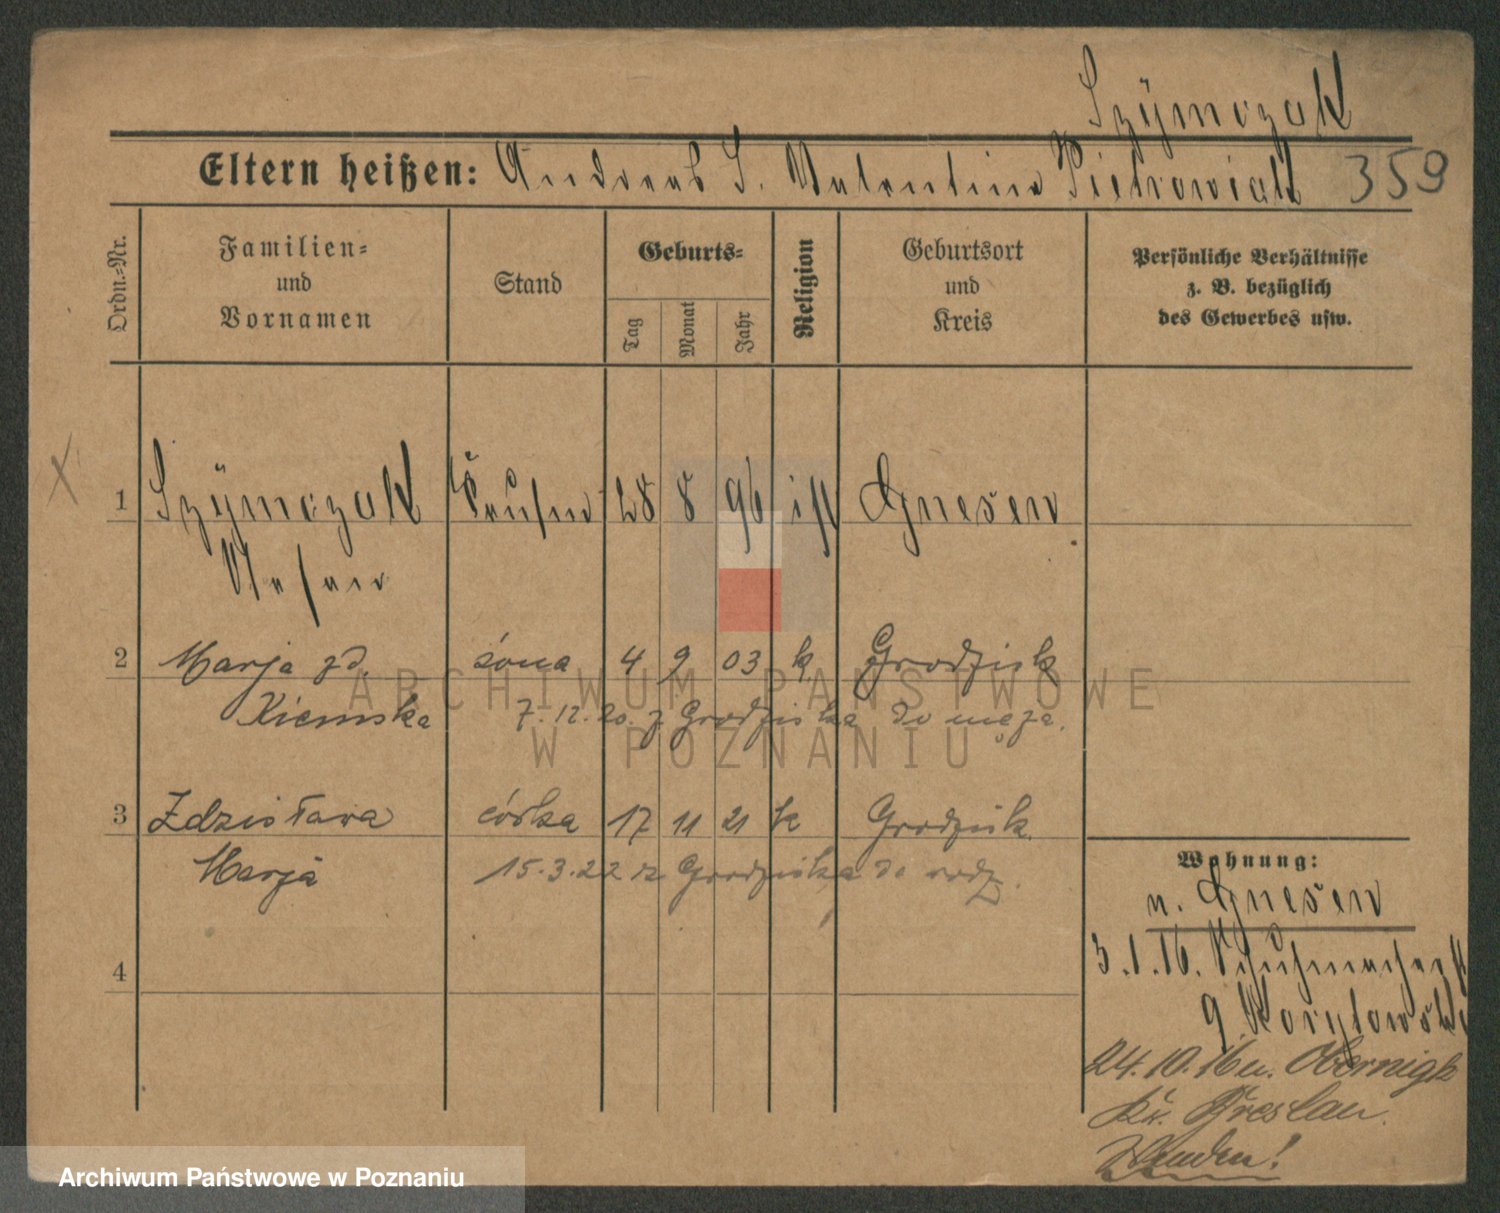 Szÿmczak
Eltern heißen: Andreas S. Valentine Pietrowiak 359
Ordn.-Nr.
Familien-
und
Vornamen
Stand
Geburts-
Tag
Monat
Jahr
Religion
Geburtsort
und
Kreis
Persönliche Verhältnisse
z. B. bezüglich
des Gewerbes usw.
X
1 Szÿmczak 28 8 96 Gnesen
2 Marja zd. żona 4 9 03 k Grodzisk
Kiemska 7.12.20. z Grodziska do męża.
3 Zdzisława córka 17 11 21 k Grodzisk
Marja 15.3.22 z Grodziska do rodz.
4
Wohnung:
n. Gnesen
3.1.16. Schuhmacherst
9 Korytowski
24.10.16 n. Obernigk
Kr. Breslau.
ARCHIWUM PAŃSTWOWE
W POZNANIU
Archiwum Państwowe w Poznaniu